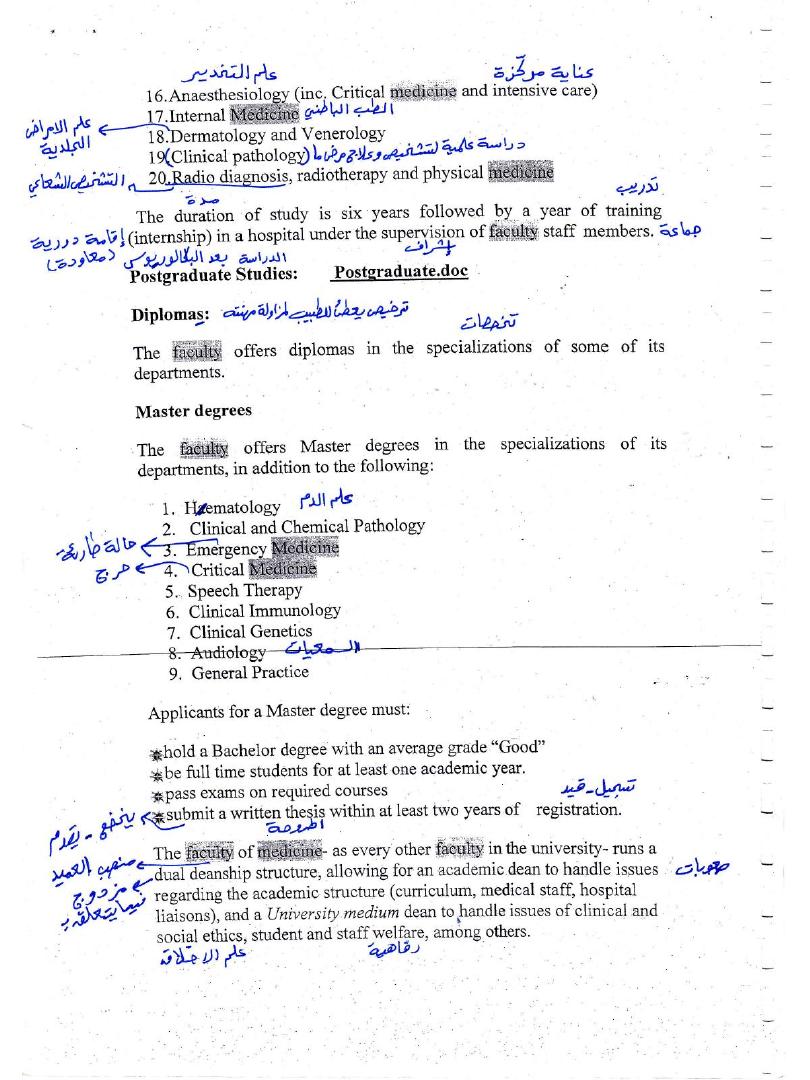 علم التخدير عناية مركّزة
16.Anaesthesiology (inc. Critical medicine and intensive care)
17.Internal Medicine الطب الباطني
علم الامراض الجلدية
18.Dermatology and Venerology
19(Clinical pathology) دراسة علمية لتشخيص وعلاج مرض ما
20.Radio diagnosis, radiotherapy and physical medicine
التشخيص الشعاعي
مدة تدريب
The duration of study is six years followed by a year of training
إقامة دورية (internship) in a hospital under the supervision of faculty staff members. جماعة
إشراف
الدراسة بعد البكالوريوس (معاودة)
Postgraduate Studies: Postgraduate.doc
Diplomas: ترخيص يعطى للطبيب لمزاولة مهنته
تخصصات
The faculty offers diplomas in the specializations of some of its
departments.
Master degrees
The faculty offers Master degrees in the specializations of its
departments, in addition to the following:
1. Haematology علم الدم
2. Clinical and Chemical Pathology
حالة طارئة
3. Emergency Medicine
حرج
4. Critical Medicine
5. Speech Therapy
6. Clinical Immunology
7. Clinical Genetics
8. Audiology السمعيات
9. General Practice
Applicants for a Master degree must:
hold a Bachelor degree with an average grade “Good”
be full time students for at least one academic year.
pass exams on required courses
تسجيل - قيد
submit a written thesis within at least two years of registration.
يخضع - يقدم
اطروحة
The faculty of medicine- as every other faculty in the university- runs a
منصب العميد
dual deanship structure, allowing for an academic dean to handle issues صعوبات
مزدوج
regarding the academic structure (curriculum, medical staff, hospital
فيما يتعلق بـ
liaisons), and a University medium dean to handle issues of clinical and
social ethics, student and staff welfare, among others.
علم الاخلاق رفاهية